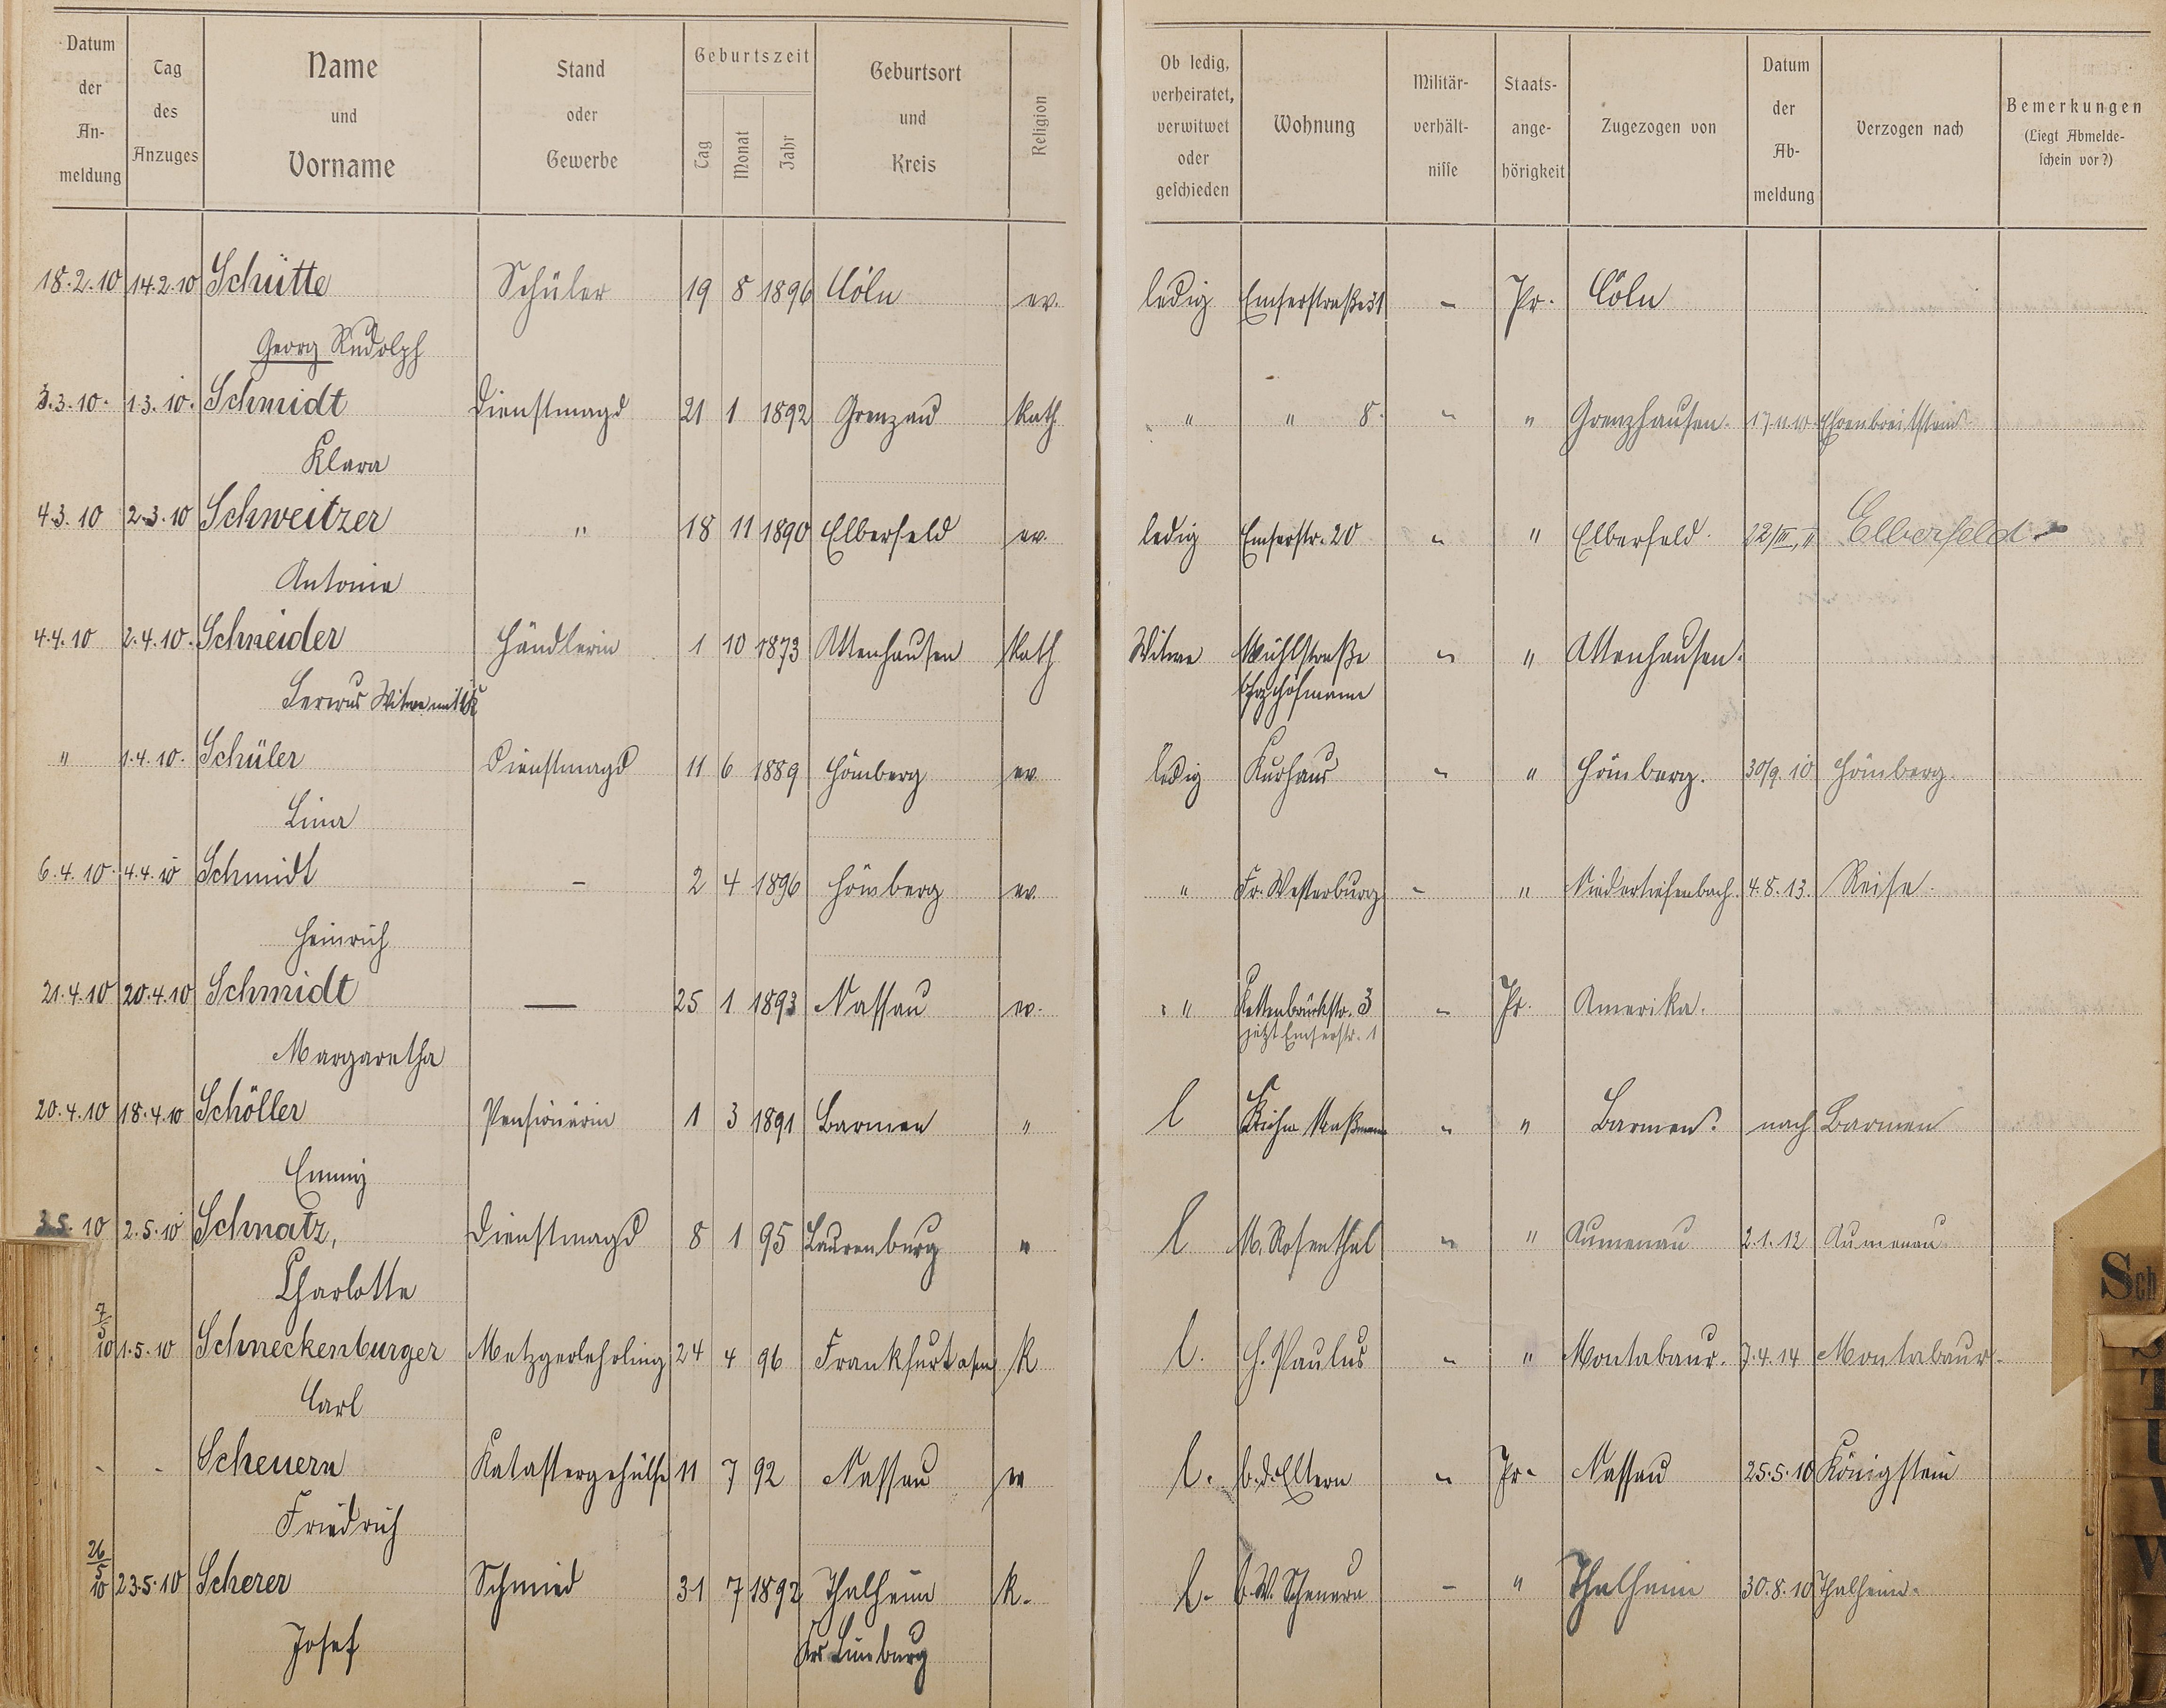 Datum der An-meldung | Tag des Anzuges | Name und Vorname | Stand oder Gewerbe | Geburtszeit Tag Monat Jahr | Geburtsort und Kreis | Religion | Ob ledig, verheiratet, verwitwet oder geschieden | Wohnung | Militär-verhält-nisse | Staats-ange-hörigkeit | Zugezogen von | Datum der Ab-meldung | Verzogen nach | Bemerkungen (Liegt Abmelde-schein vor?)
18.2.10 14.2.10 Schütte Schüler 19 8 1896 Cöln ev. ledig Emserstraße 31 - Pr. Cöln
Georg Rudolph
3.3.10. 1.3.10. Schmidt Dienstmagd 21 1 1892 Grenzau Kath " " 8. " " Grenzhausen. 17.11.10 Ehrenbreitstein
Klara
4.3.10 2.3.10 Schweitzer " 18 11 1890 Elberfeld ev. ledig Emserstr. 20 " " Elberfeld. 22/III, 11 Elberfeld
Antonie
4.4.10 2.4.10. Schneider Händlerin 1 10 1873 Attenhausen Kath Witwe Mühlstraße " " Attenhausen.
Witwe mit
" 1.4.10. Schüler Dienstmagd 11 6 1889 Hömberg ev ledig Kurhaus " " Hömberg. 30/9.10 Hömberg.
Lina
6.4.10. 4.4.10 Schmidt - 2 4 1896 Hömberg ev. " Fr. Westerburg - " Niedertiefenbach. 4.8.13. Reise.
Heinrich
21.4.10 20.4.10 Schmidt — 25 1 1893 Nassau ev. " Kettenbrückstr. 3 - Pr. Amerika.
jetzt Emserstr. 1
Margaretha
20.4.10 18.4.10 Schöller Pensionärin 1 3 1891 Barmen " l " " Barmen. nach Barmen
Emmy
3.5.10 2.5.10 Schnatz, Dienstmagd 8 1 95 Laurenburg " l M. Rosenthal " " Aumenau 2.1.12 Aumenau
Charlotte
7/5 10 1.5.10 Schneckenburger Metzgerlehrling 24 4 96 Frankfurt a/m K l. H. Paulus " " Montabaur. 7.4.14 Montabaur.
Carl
- - Scheuern Katastergehülfe 11 7 92 Nassau ev l. b. d. Eltern " Pr. Nassau 25.5.10 Königstein
Friedrich
26/5 10 23.5.10 Scherer Schmied 31 7 1892 Thalheim K. l. b. W. Scheuern - " Thalheim 30.8.10 Thalheim.
Krs Limburg
Josef
Sch